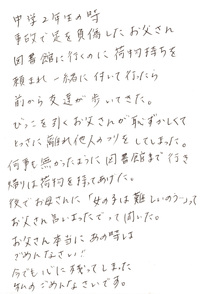 中学2年生の時
事故で足を負傷したお父さん
図書館に行くのに荷物持ちを
頼まれ一緒に付いて行ったら
前から友達が歩いてきた。
びっこを引くお父さんが恥ずかしくて
とっさに離れ他人のフリをしてしまった。
何事も無かったように図書館まで行き
帰りは荷物を持ってあげた。
後でお母さんに「女の子は難しいのう」って
お父さん言いよったでって聞いた。
お父さん本当にあの時は
ごめんなさい!
今でも心に残ってしまった
私のごめんなさいです。